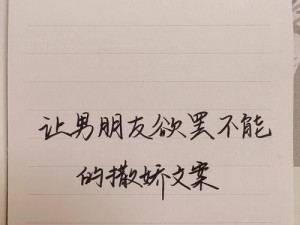 让男朋友欲罢不能
的撒娇文案